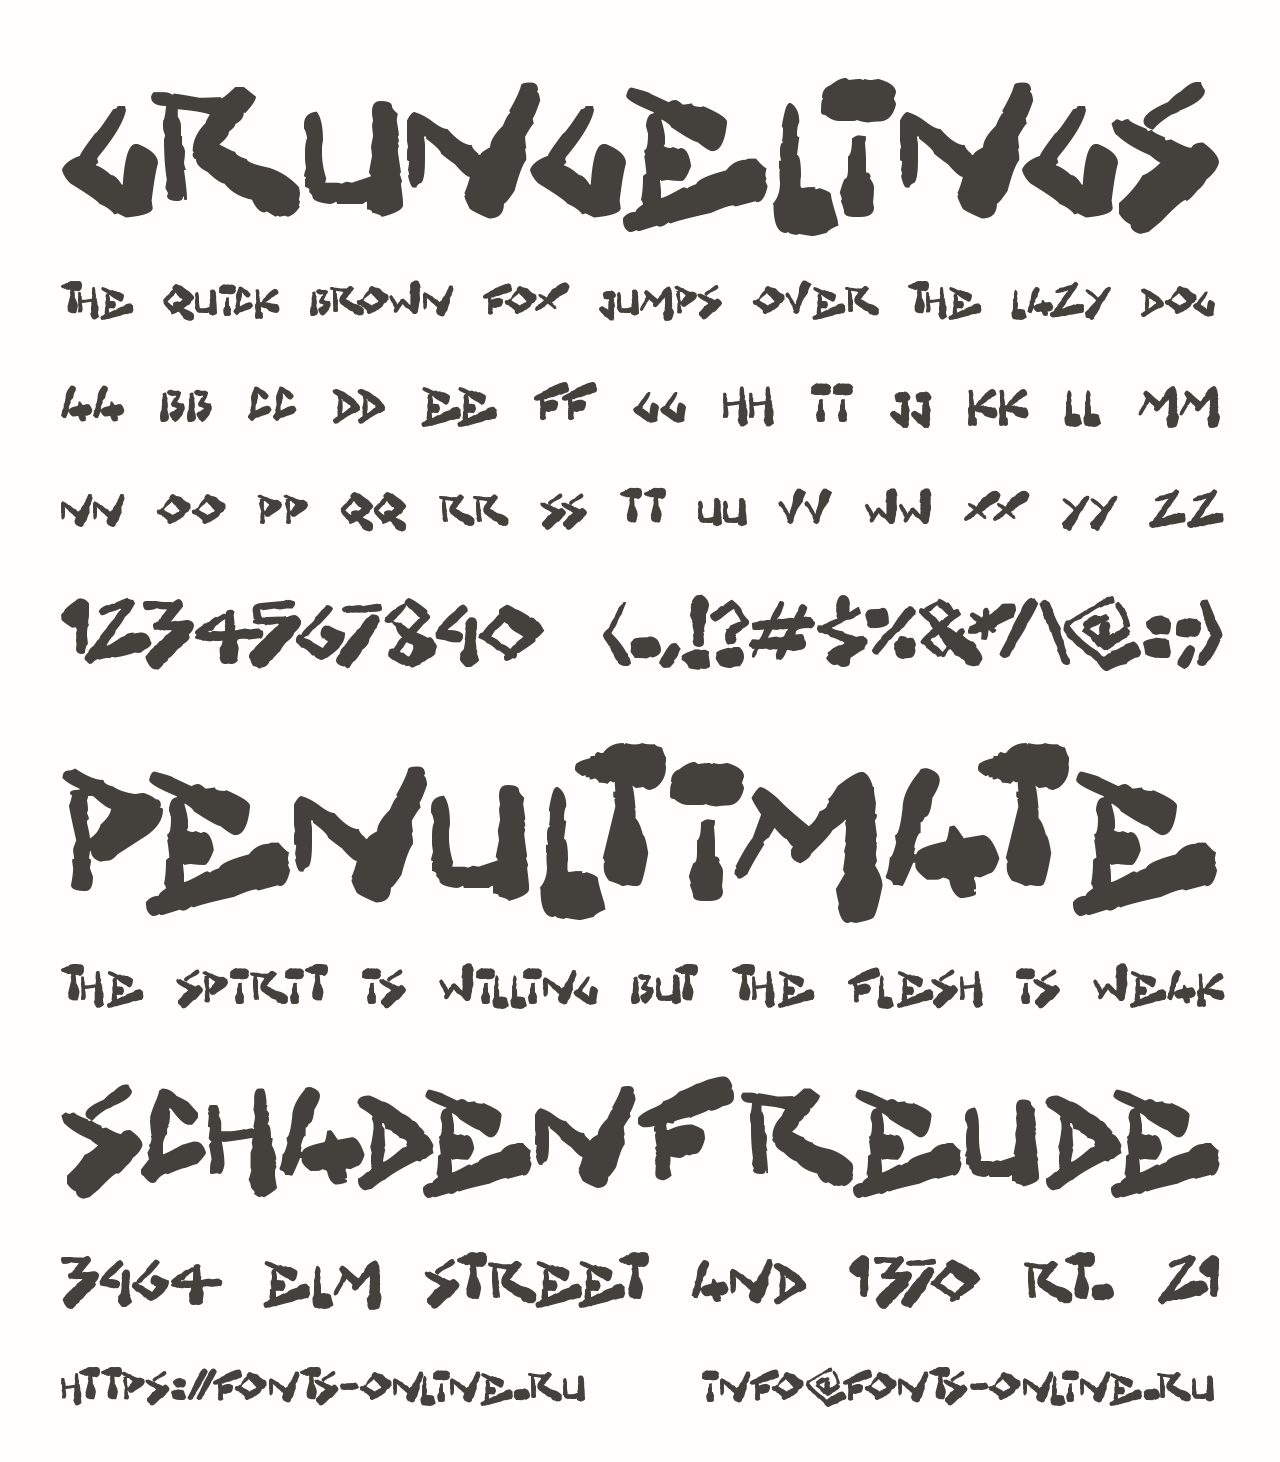 GRUNGELINGS
THE QUICK BROWN FOX JUMPS OVER THE LAZY DOG
AA BB CC DD EE FF GG HH II JJ KK LL MM
NN OO PP QQ RR SS TT UU VV WW XX YY ZZ
1234567890 (.,!?#$%&*/\@:;)
PENULTIMATE
THE SPIRIT IS WILLING BUT THE FLESH IS WEAK
SCHADENFREUDE
3964 ELM STREET AND 1370 RT. 21
HTTPS://FONTS-ONLINE.RU INFO@FONTS-ONLINE.RU